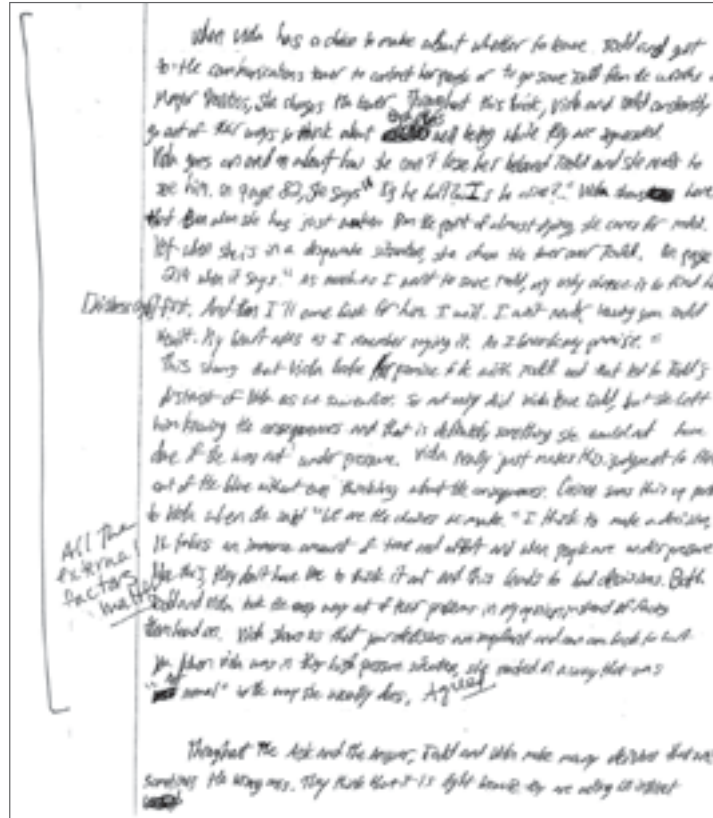 When Viola has a choice to make about whether to leave Todd and get
to the communications tower to contact her people or to go save Todd from the
Mayor Prentiss, she chooses the tower. Throughout this book, Viola and Todd constantly
go out of their ways to think about well being while they are separated.
Viola goes on and on about how she can't lose her beloved Todd and she needs to
see him. On page 82, she says "Is he hurt? Is he alive?" Viola
that even when she has just woken from the point of almost dying, she cares for Todd.
Yet when she is in a desperate situation, she chose the tower over Todd. On page
214 when it says. "As much as I want to save Todd, my only chance is to find
first. And then I'll come back for him. I will. I won't never leaving you Todd
Hewitt. My heart aches as I remember saying it. As I break my promise."
This shows that Viola broke her promise to be with Todd and that led to Todd's
distrust of Viola as we see. So not only did Viola leave Todd, but she left
him knowing the consequences and that is definitely something she would not have
done if she was not under pressure. Viola really just makes this judgment to
out of the blue without even thinking about the consequences. sums this up
to Viola when she said "We are the choices we make." I think to make a decision,
it takes an immense amount of time and effort and when people are under pressure
like this, they don't have time to think it out and this leads to bad decisions. Both
Todd and Viola took the easy way out of their problems in my opinion instead of facing
them head on. Viola shows us that your decisions are important and can come back to hurt
you. When Viola was in they high pressure situation, she reacted in a way that was
"normal" to the way she usually does. Agreed
All the
external
factors
matter
Throughout The Ask and the Answer, Todd and Viola make many decisions that are
sometimes the wrong ones. They think that it is right because they are acting on instinct